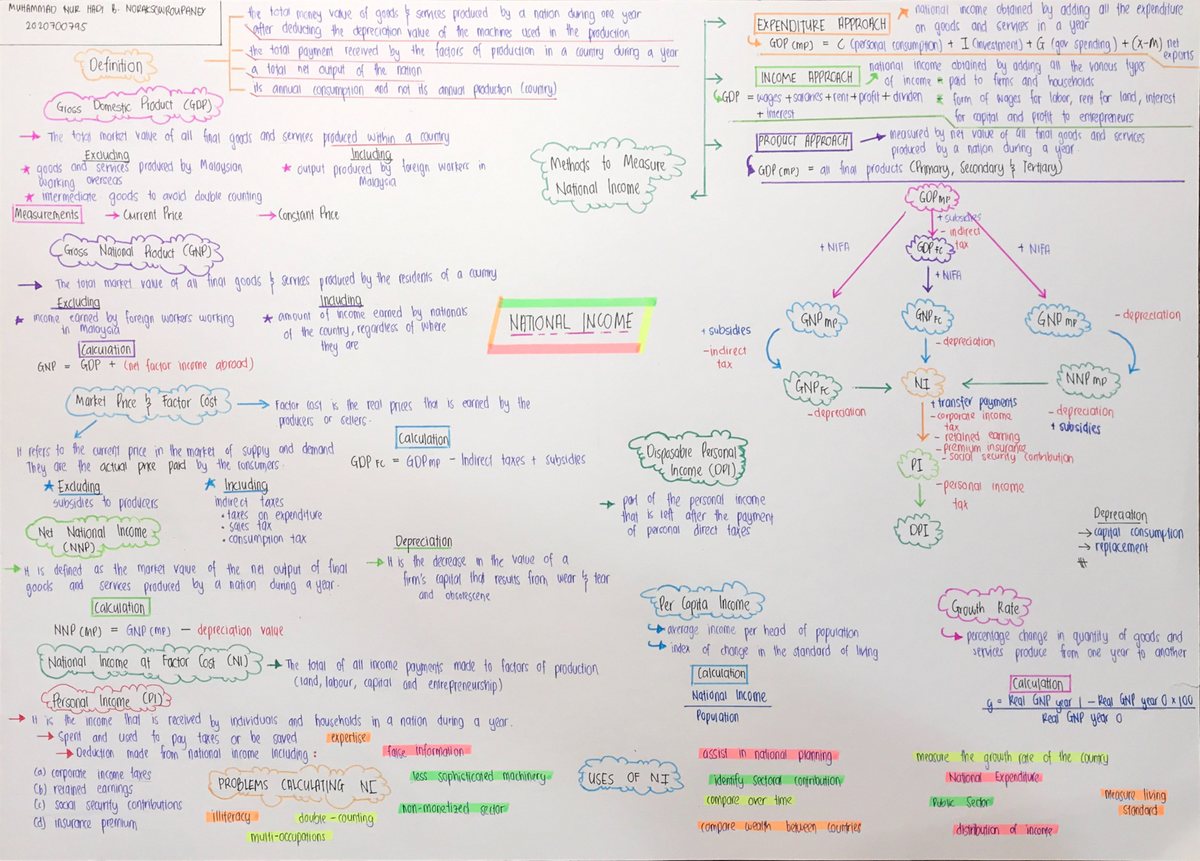 MUHAMMAD NUR HADI B.
2020700795
Definition
the total money value of goods & services produced by a nation during one year
after deducting the depreciation value of the machines used in the production
the total payment received by the factors of production in a country during a year
a total net output of the nation
its annual consumption and not its annual production (country)
Gross Domestic Product (GDP)
The total market value of all final goods and services produced within a country
Excluding
goods and services produced by Malaysian
working overseas
intermediate goods to avoid double counting
Including
output produced by foreign workers in
Malaysia
Measurements
Current Price
Constant Price
Gross National Product (GNP)
The total market value of all final goods & services produced by the residents of a country
Excluding
income earned by foreign workers working
in Malaysia
Including
amount of income earned by nationals
of the country, regardless of where
they are
Calculation
GNP = GDP + (net factor income abroad)
Market Price & Factor Cost
Factor cost is the real prices that is earned by the
producers or sellers.
It refers to the current price in the market of supply and demand
They are the actual price paid by the consumers.
Excluding
subsidies to producers
Including
indirect taxes
• taxes on expenditure
• sales tax
• consumption tax
Calculation
GDP FC = GDP mp - Indirect taxes + subsidies
Net National Income
(NNP)
It is defined as the market value of the net output of final
goods and services produced by a nation during a year.
Depreciation
It is the decrease in the value of a
firm's capital that results from wear & tear
and obsolescene
Calculation
NNP (MP) = GNP (MP) - depreciation value
National Income at Factor Cost (NI)
The total of all income payments made to factors of production
(land, labour, capital and entrepreneurship)
Personal Income (PI)
It is the income that is received by individuals and households in a nation during a year.
Spent and used to pay taxes or be saved
Deduction made from national income including :
(a) corporate income taxes
(b) retained earnings
(c) social security contributions
(d) insurance premium
PROBLEMS CALCULATING NI
expertise
false information
less sophisticated machinery
non-monetized sector
illiteracy
double-counting
multi-occupations
NATIONAL INCOME
Methods to Measure
National Income
EXPENDITURE APPROACH
national income obtained by adding all the expenditure
on goods and services in a year
GDP (MP) = C (personal consumption) + I (investment) + G (gov spending) + (X-M) net
exports
INCOME APPROACH
national income obtained by adding all the various types
of income paid to firms and households
GDP = wages + salaries + rent + profit + dividen
+ interest
form of wages for labor, rent for land, interest
for capital and profit to entrepreneurs
PRODUCT APPROACH
measured by net value of all final goods and services
produced by a nation during a year.
GDP (MP) = all final products (Primary, Secondary & Tertiary)
GDP MP
+ subsidies
- indirect
tax
+ NIFA
GDP FC
+ NIFA
+ NIFA
GNP mp
GNP FC
GNP mp
- depreciation
+ subsidies
- indirect
tax
- depreciation
GNP FC
NI
NNP mp
- depreciation
- depreciation
+ subsidies
+ transfer payments
- corporate income
tax
- retained earning
- premium insurance
- social security contribution
PI
- personal income
tax
DPI
Depreciation
→ capital consumption
→ replacement
Disposable Personal
Income (DPI)
part of the personal income
that is left after the payment
of personal direct taxes
Per Capita Income
average income per head of population
index of change in the standard of living
Calculation
National Income
Population
Growth Rate
percentage change in quantity of goods and
services produce from one year to another
Calculation
g = Real GNP year 1 - Real GNP year 0 x 100
Real GNP year 0
USES OF NI
assist in national planning
identify sectoral contribution
compare over time
compare wealth between countries
measure the growth rate of the country
National Expenditure
Public Sector
measure living
standard
distribution of income